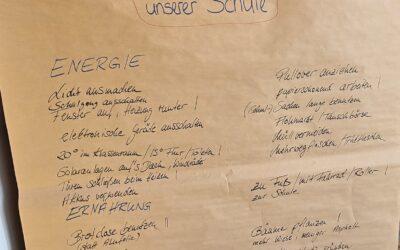 unserer Schule
ENERGIE
Licht ausmachen
Schulgong ausschalten
Fenster auf, Heizung runter!
elektronische Geräte ausschalten
20° im Klassenraum / 15° Flur / Toilette!
Solaranlagen auf's Dach, Windräder
Türen schließen beim Heizen!
Akkus verwenden
ERNÄHRUNG
Brotdose benutzen !!
(statt Alufolie)
Pullover anziehen
papiersparend arbeiten!
Sachen lange benutzen
Flohmarkt / Tauschbörse
Müll vermeiden
Mehrwegflaschen / Trinkflaschen
zu Fuß / mit Fahrrad / Roller!
zur Schule
Bäume pflanzen!
mehr Wiese, weniger Asphalt